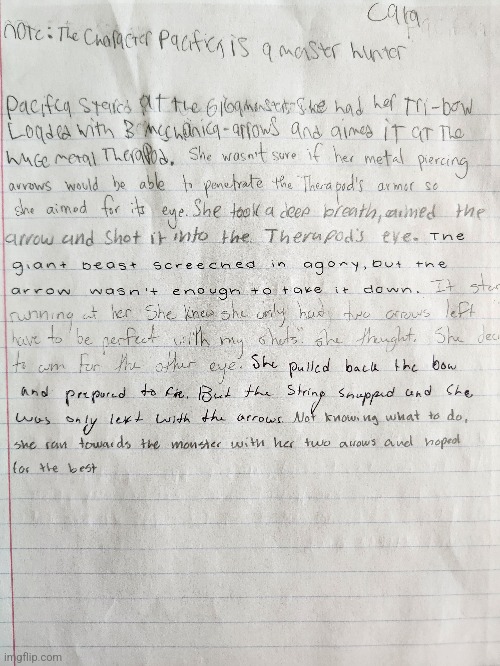 Cara
NOTE: The Character Pacifica is a monster hunter
Pacifica Stared At The Gloamonster. She had her Tri-bow
Loaded with 3 mechanica-arrows and aimed iT aT The
huge metal Therapod. She wasn't sure if her metal piercing
arrows would be able to penetrate the Therapod's armor so
she aimed for its eye. She took a deep breath, aimed the
arrow and shot it into the Therapod's eye. The
giant beast screeched in agony, but the
arrow wasn't enough to take it down. It star
running at her She knew she only had two arrows left
have to be perfect with my shots" she thought. She dec
to aim for the other eye. She pulled back the bow
and prepared to fire. But the string snapped and she
was only left with the arrows. Not knowing what to do,
she ran towards the monster with her two arrows and hoped
for the best
imgflip.com